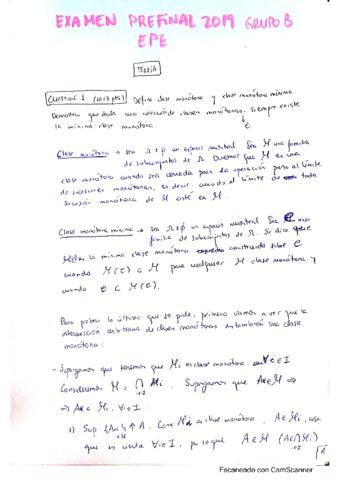 EXAMEN PREFINAL 2019 GRUPO B
EPE
TEORÍA
CUESTIÓN 1 Define clase monótona y clase monótona mínima
Demostrar que dada una colección de clases monótonas, siempre existe
la mínima clase monótona
Clase monótona → sea Ω ≠ ϕ un espacio muestral. Sea M una familia
de subconjuntos de Ω. Diremos que M es una
clase monótona cuando sea cerrada para la operación paso al límite
de sucesiones monótonas, es decir, cuando el límite de toda
sucesión monótona de M esté en M.
Clase monótona mínima → sea Ω ≠ ϕ un espacio muestral. Sea C una
familia de subconjuntos de Ω. Se dice que
M(C) es la mínima clase monótona construida sobre C
cuando M(C) ⊂ M para cualquier M clase monótona y
cuando C ⊂ M(C).
Para probar lo último que se pide, primero vamos a ver que la
intersección arbitraria de clases monótonas es también una clase
monótona:
- Supongamos que tenemos que Mi es clase monótona, ∀i∈I
Consideremos M = ∩ Mi. Supongamos que A∈M ⇒
i∈I
⇒ A∈Mi, ∀i∈I.
1) Sup {An} ↑ A. Como Mi es clase monótona, A∈Mi, cosa
que es cierta ∀i∈I, por lo que A∈M (A∈∩Mi)
i∈I
1
Escaneado con CamScanner